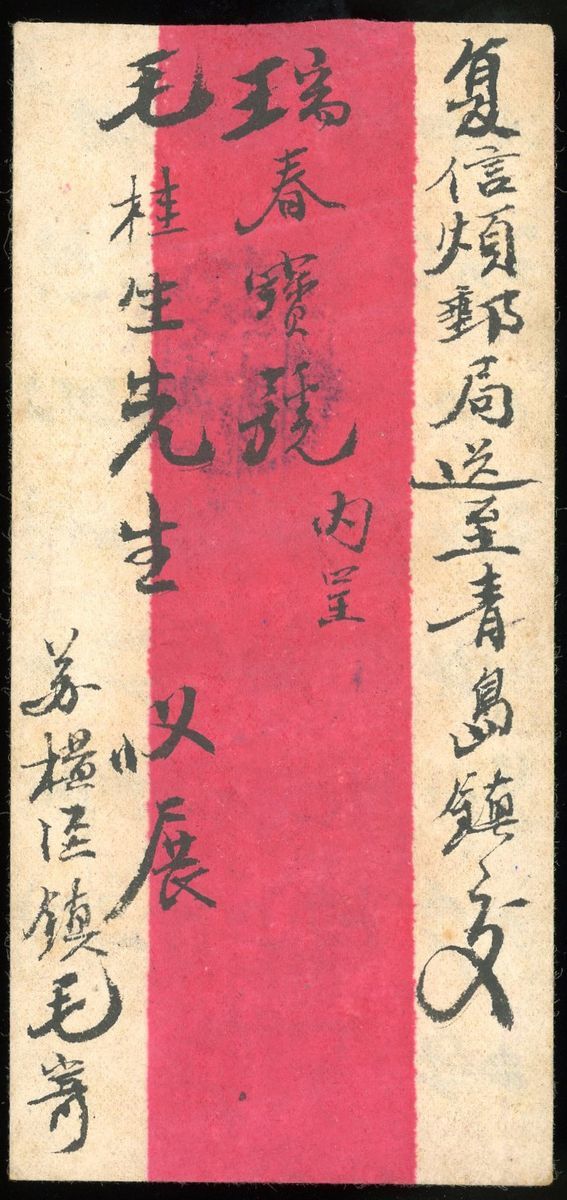 复信煩郵局送至青島鎮交
瑞春寶號
内呈
毛桂生先生 收展
苏橫涇鎮毛寄